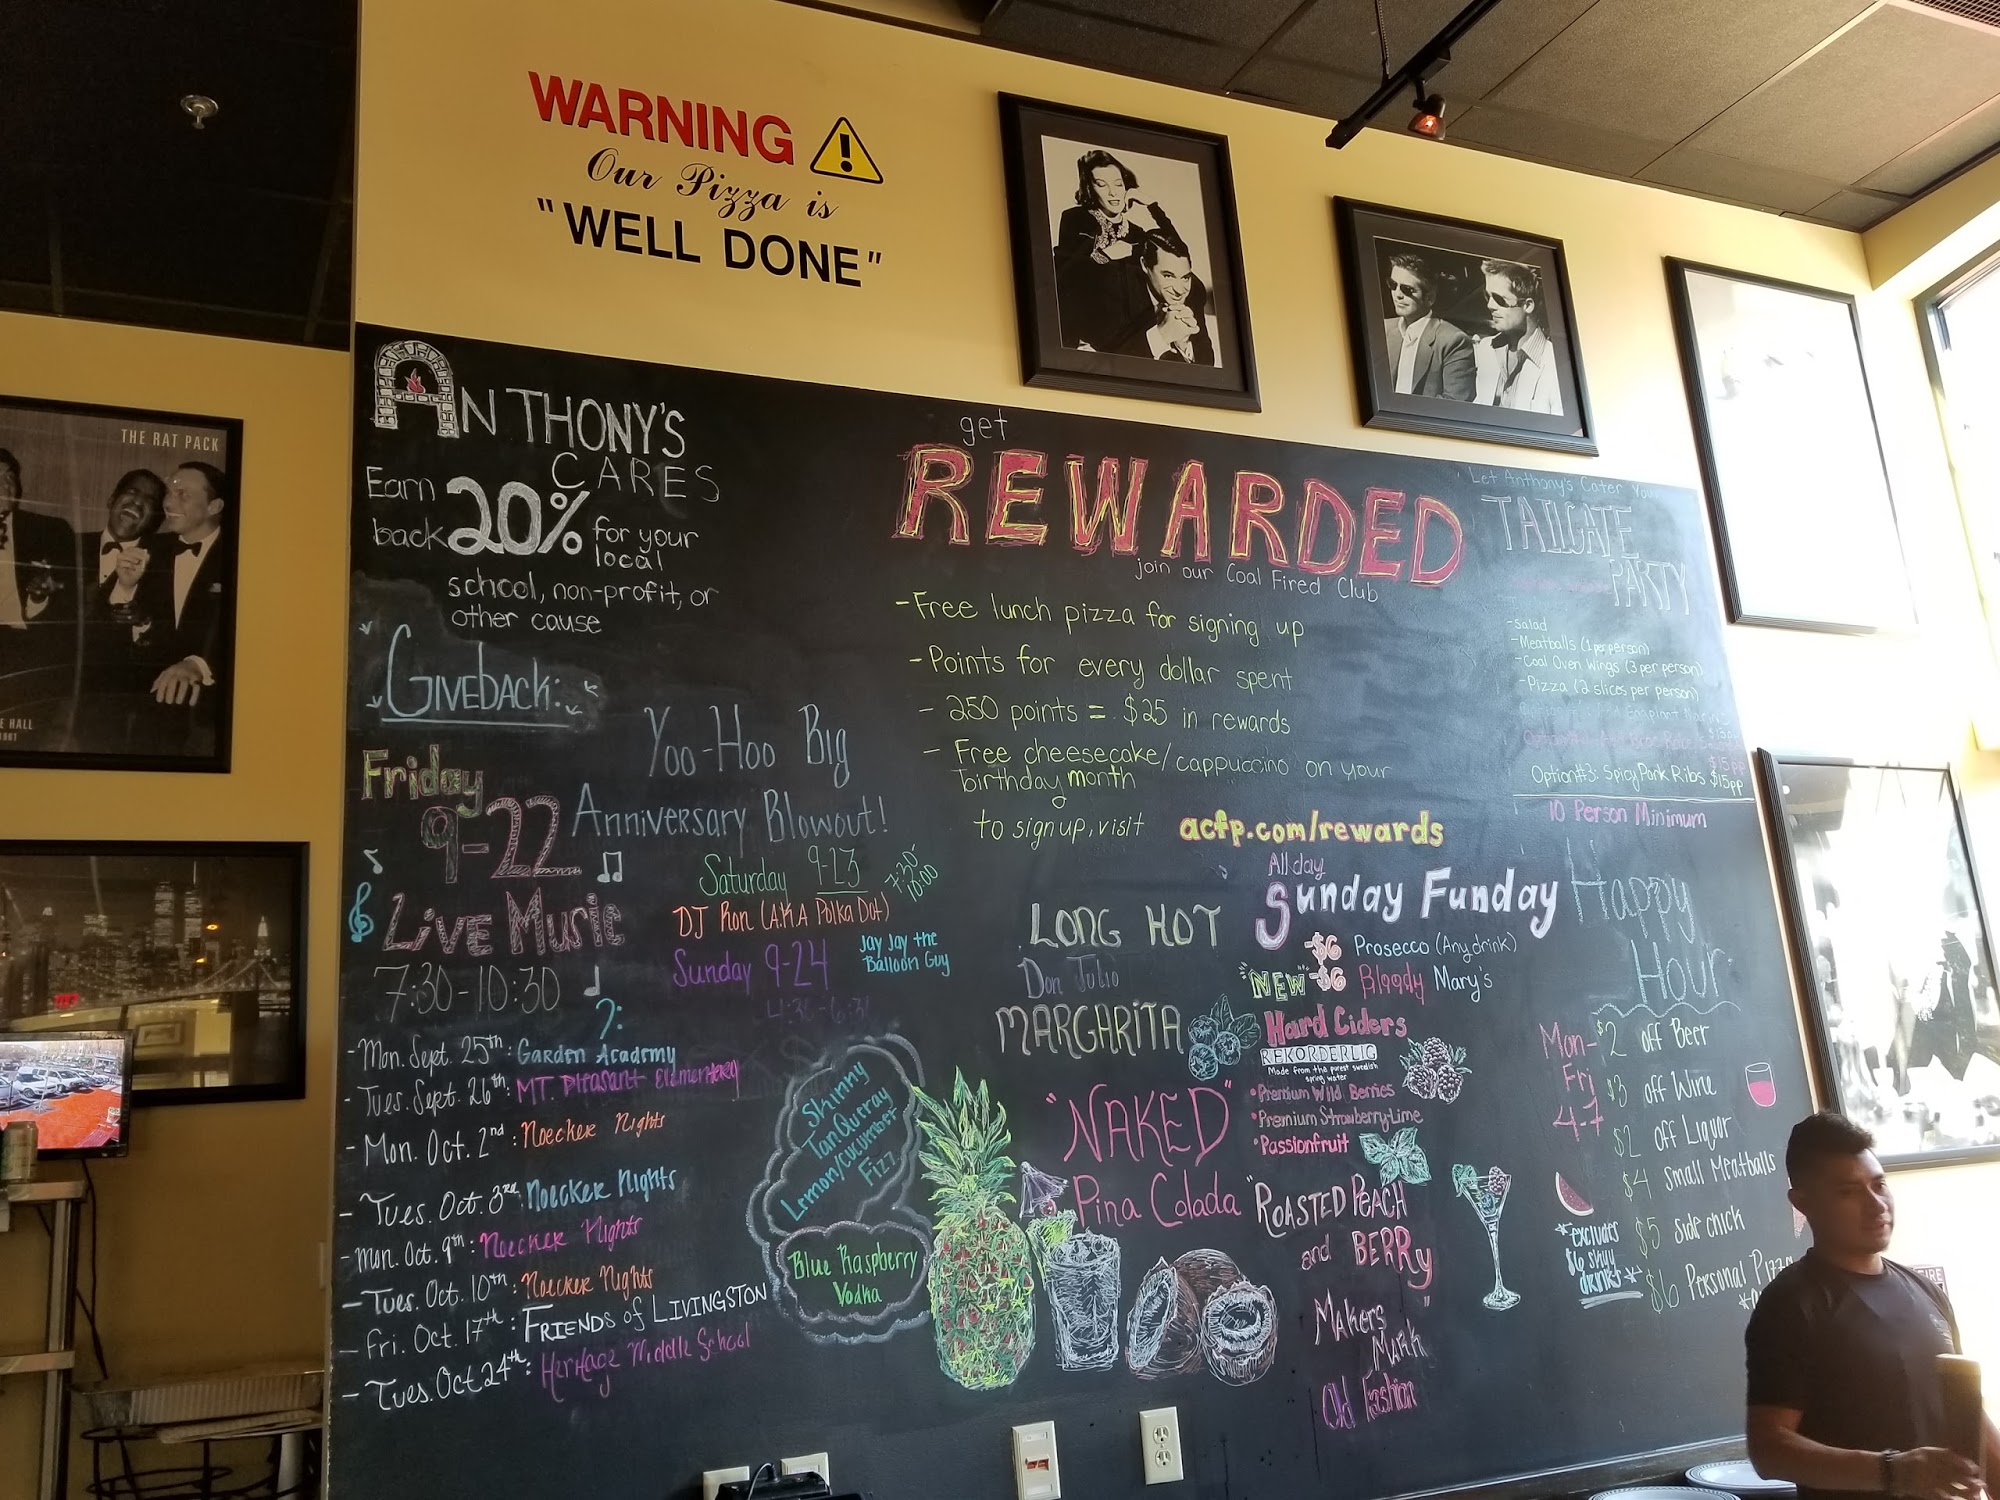 WARNING
Our Pizza is
"WELL DONE"
THE RAT PACK
ANTHONY'S
CARES
Earn
back 20% for your
local
school, non-profit, or
other cause
GIVEBACK:
Friday
9-22
LIVE MUSIC
7:30-10:30
Yoo-Hoo Big
Anniversary Blowout!
Saturday 9-23
7:30-
10:00
DJ Ron (A.K.A Polka Dot)
Sunday 9-24
Jay Jay the
Balloon Guy
- Mon. Sept. 25th: Garden Academy
- Tues. Sept. 26th: MT. Pleasant Elementary
- Mon. Oct. 2nd: Noecker Nights
- Tues. Oct. 3rd: Noecker Nights
- Mon. Oct. 9th: Noecker Nights
- Tues. Oct. 10th: Noecker Nights
- Fri. Oct. 17th: FRIENDS of LIVINGSTON
- Tues. Oct 24th: Heritage Middle School
get
REWARDED
join our Coal Fired Club
- Free lunch pizza for signing up
- Points for every dollar spent
- 250 points = $25 in rewards
- Free cheesecake/cappuccino on your
birthday month
to sign up, visit acfp.com/rewards
Skinny
TanQueray
Lemon/cucumber
Fizz
Blue Raspberry
Vodka
LONG HOT
Don Julio
MARGARITA
"NAKED"
Pina Colada
All day
Sunday Funday
-$6 Prosecco (Any drink)
"NEW" -$6 Bloody Mary's
Hard Ciders
REKORDERLIG
Made from the purest swedish
spring water
• Premium Wild Berries
• Premium Strawberry-Lime
• Passionfruit
"ROASTED PEACH
and BERRY
MAKERS
MARK"
Old Fashion
Let Anthony's Cater Your
TAILGATE
PARTY
- Salad
- Meatballs (1 per person)
- Coal Oven Wings (3 per person)
- Pizza (2 slices per person)
Option#3: Spicy Pork Ribs $15pp
10 Person Minimum
Happy
Hour:
Mon-
Fri
4-7
$2 off Beer
$3 off Wine
$2 off Liquor
$4 Small Meatballs
$5 side chick
$6 Personal Pizza
*excludes
$6 Sunday
drinks*